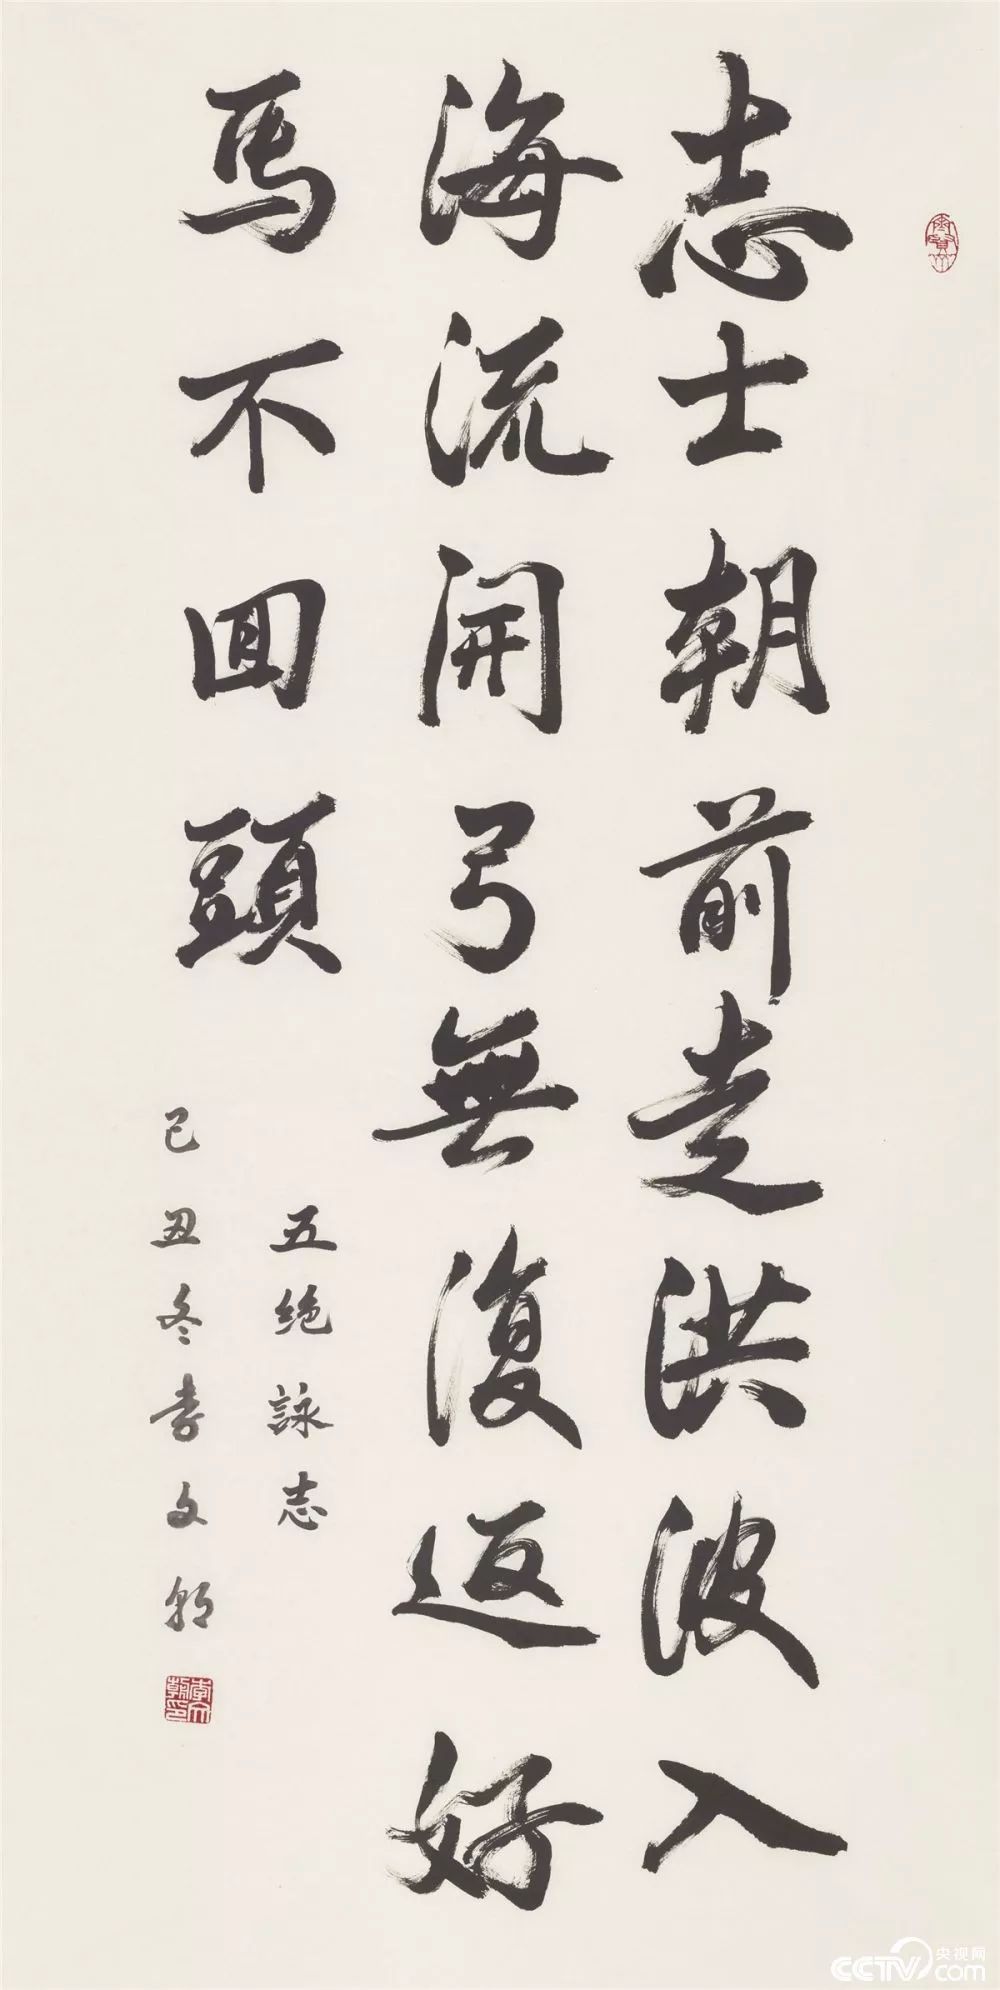 志士朝前走洪波入
海流開弓無復返好
馬不回頭
五绝詠志
己丑冬李文朝
李文朝印
央视网
CCTV.com